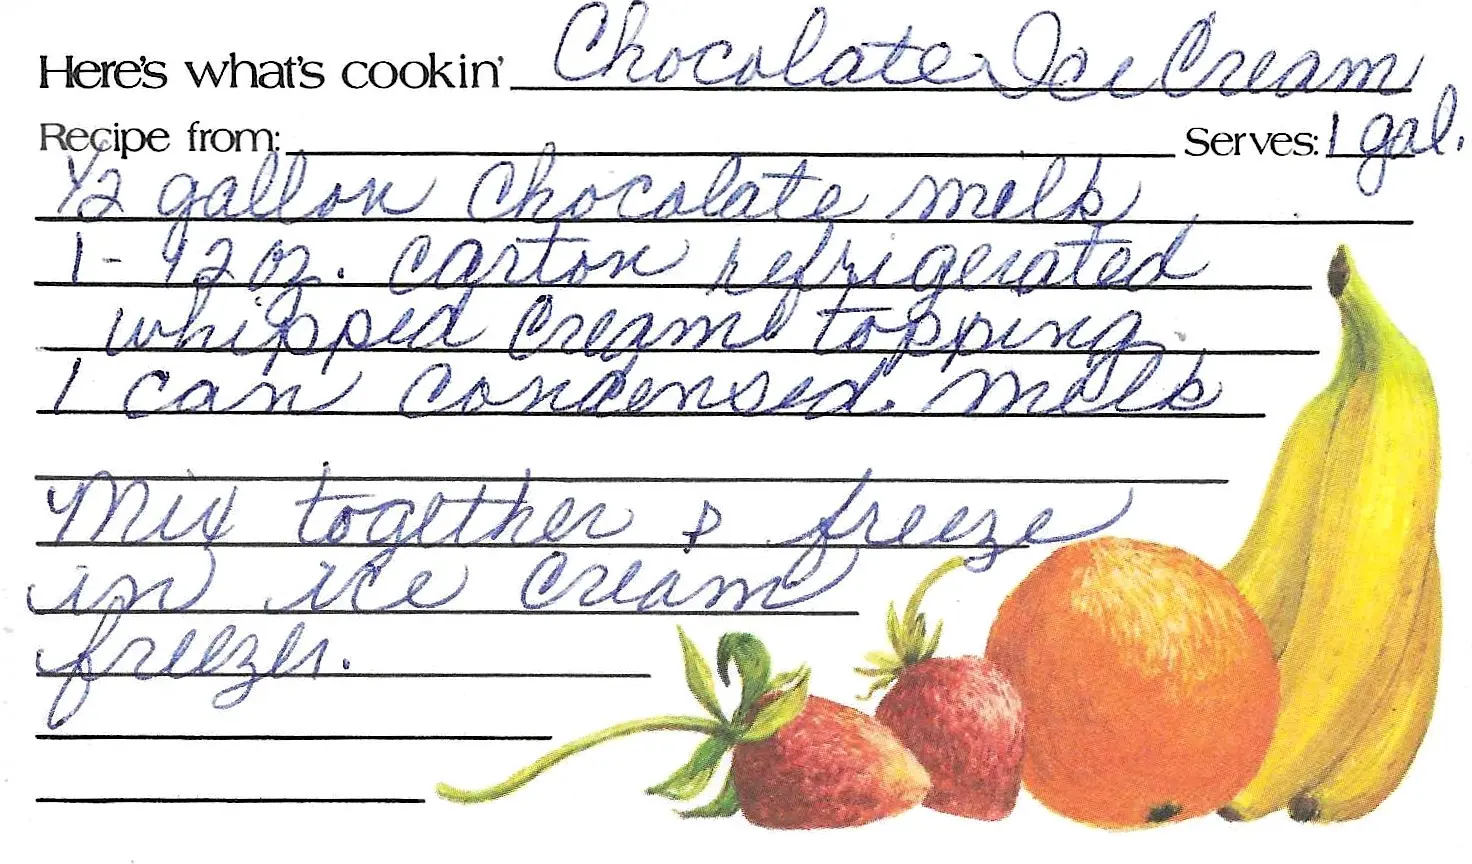 Here's what's cookin' Chocolate Ice Cream
Recipe from: Serves: 1 gal.
1/2 gallon chocolate milk
1 - 12 oz. carton refrigerated
whipped cream topping
1 can condensed milk
Mix together & freeze
in ice cream
freezer.